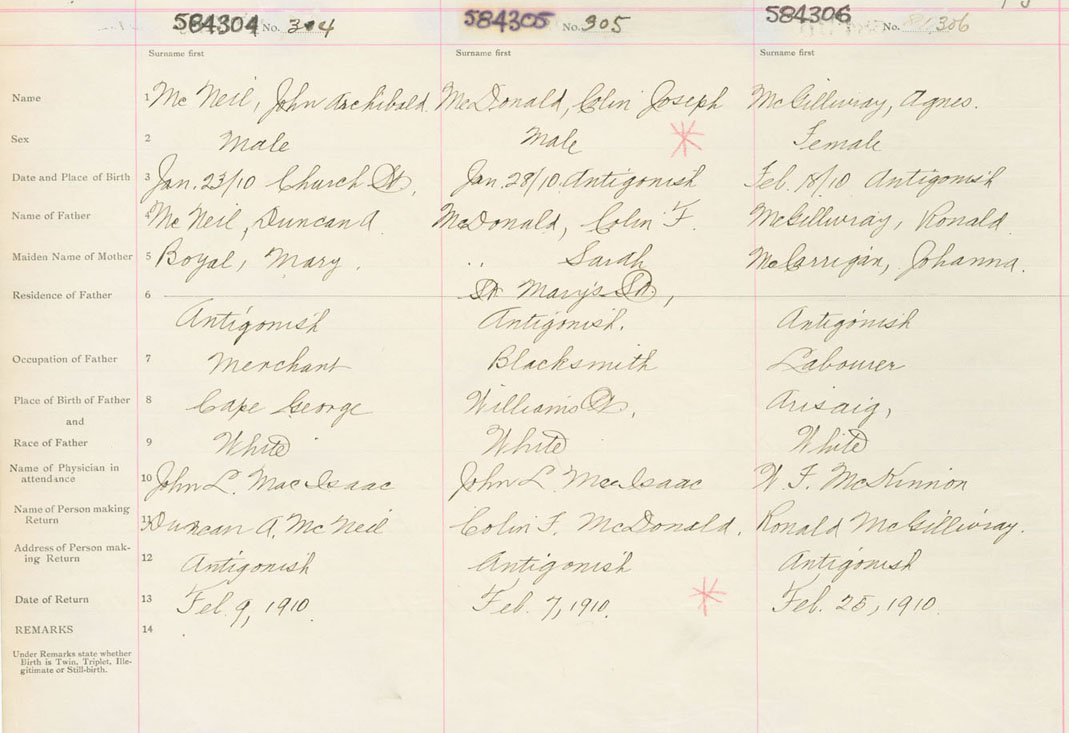 584304 No. 304 584305 No. 305 584306 No. 306
Surname first Surname first Surname first
Name 1 McNeil, John Archibald McDonald, Colin Joseph McGillivray, Agnes.
Sex 2 Male Male Female
Date and Place of Birth 3 Jan. 23/10 Church St, Jan. 28/10. Antigonish Feb. 18/10 Antigonish
Name of Father 4 McNeil, Duncan A. McDonald, Colin F. McGillivray, Ronald
Maiden Name of Mother 5 Boyal, Mary. " Sarah McCarrigan, Johanna.
St Mary's St.,
Residence of Father 6 Antigonish Antigonish. Antigonish
Occupation of Father 7 Merchant Blacksmith Labourer
Place of Birth of Father 8 Cape George Williams Pt, Arisaig,
and
Race of Father 9 White White White
Name of Physician in
attendance 10 John L. MacIsaac John L. MacIsaac W. F. McKinnon
Name of Person making
Return 11 Duncan A. McNeil Colin F. McDonald. Ronald McGillivray.
Address of Person mak-
ing Return 12 Antigonish Antigonish Antigonish
Date of Return 13 Feb. 9, 1910. Feb. 7, 1910. Feb. 25, 1910.
REMARKS 14
Under Remarks state whether
Birth is Twin, Triplet, Ille-
gitimate or Still-birth.